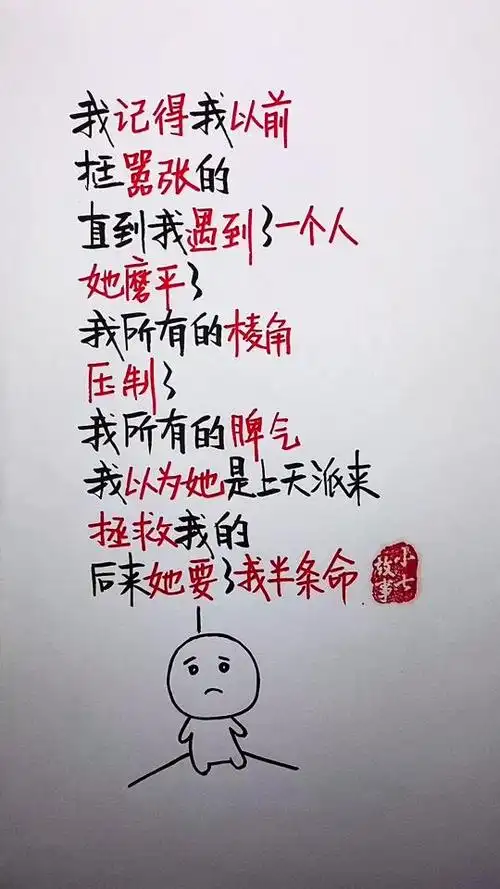 我记得我以前
挺嚣张的
直到我遇到了一个人
她磨平了
我所有的棱角
压制了
我所有的脾气
我以为她是上天派来
拯救我的
后来她要了我半条命
小七
故事